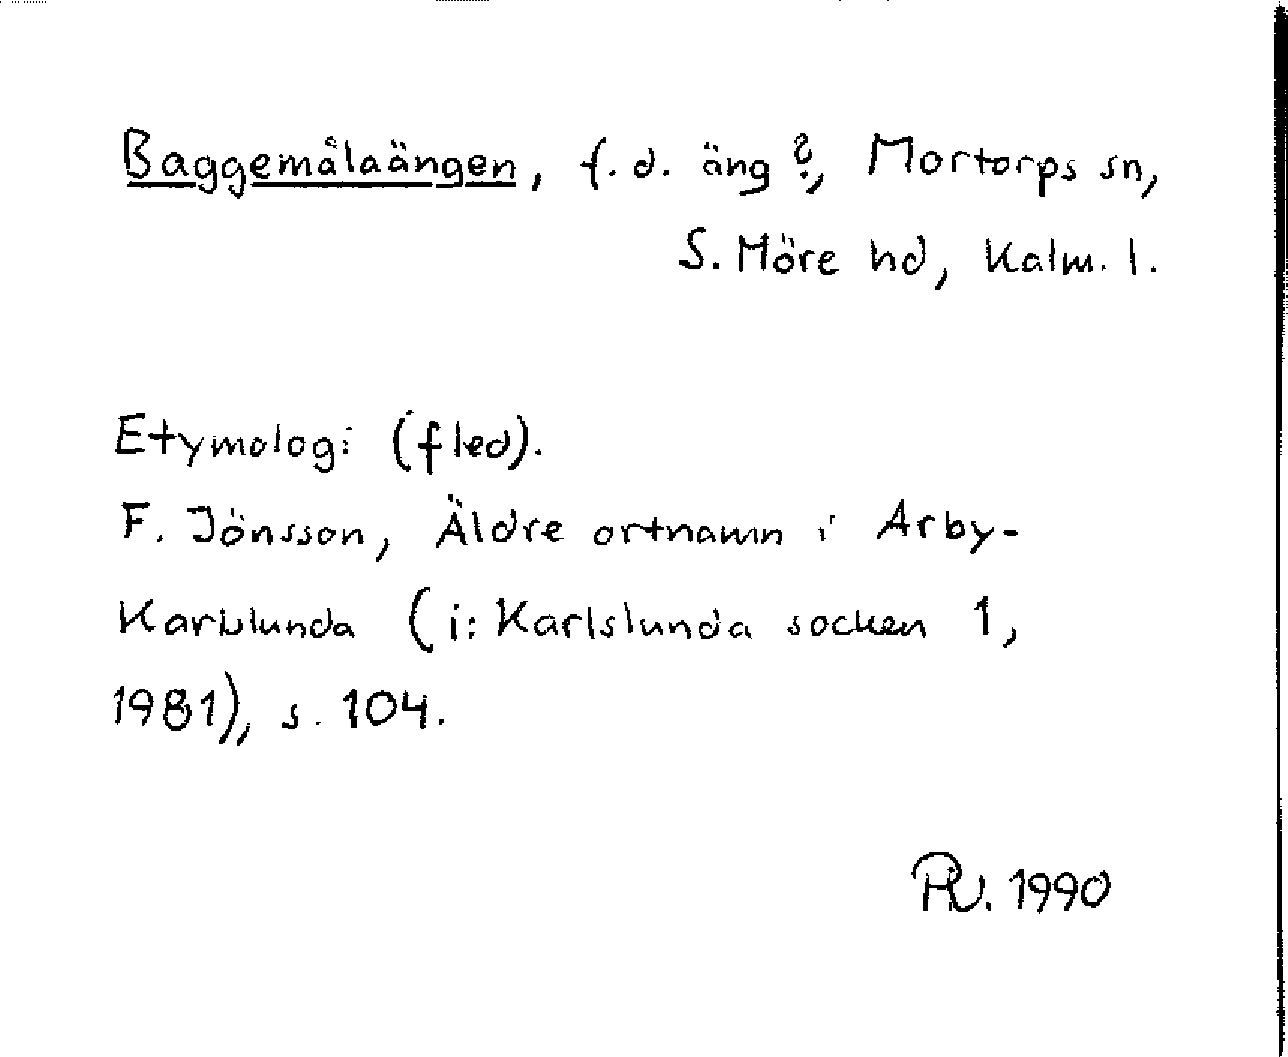 Baggemålaängen, f.d. äng?, Mortorps sn,
S. Möre hd, Kalm. l.
Etymologi (fled).
F. Jönsson, Äldre ortnamn i Arby-
Karlslunda (i: Karlslunda socken 1,
1981), s. 104.
1990